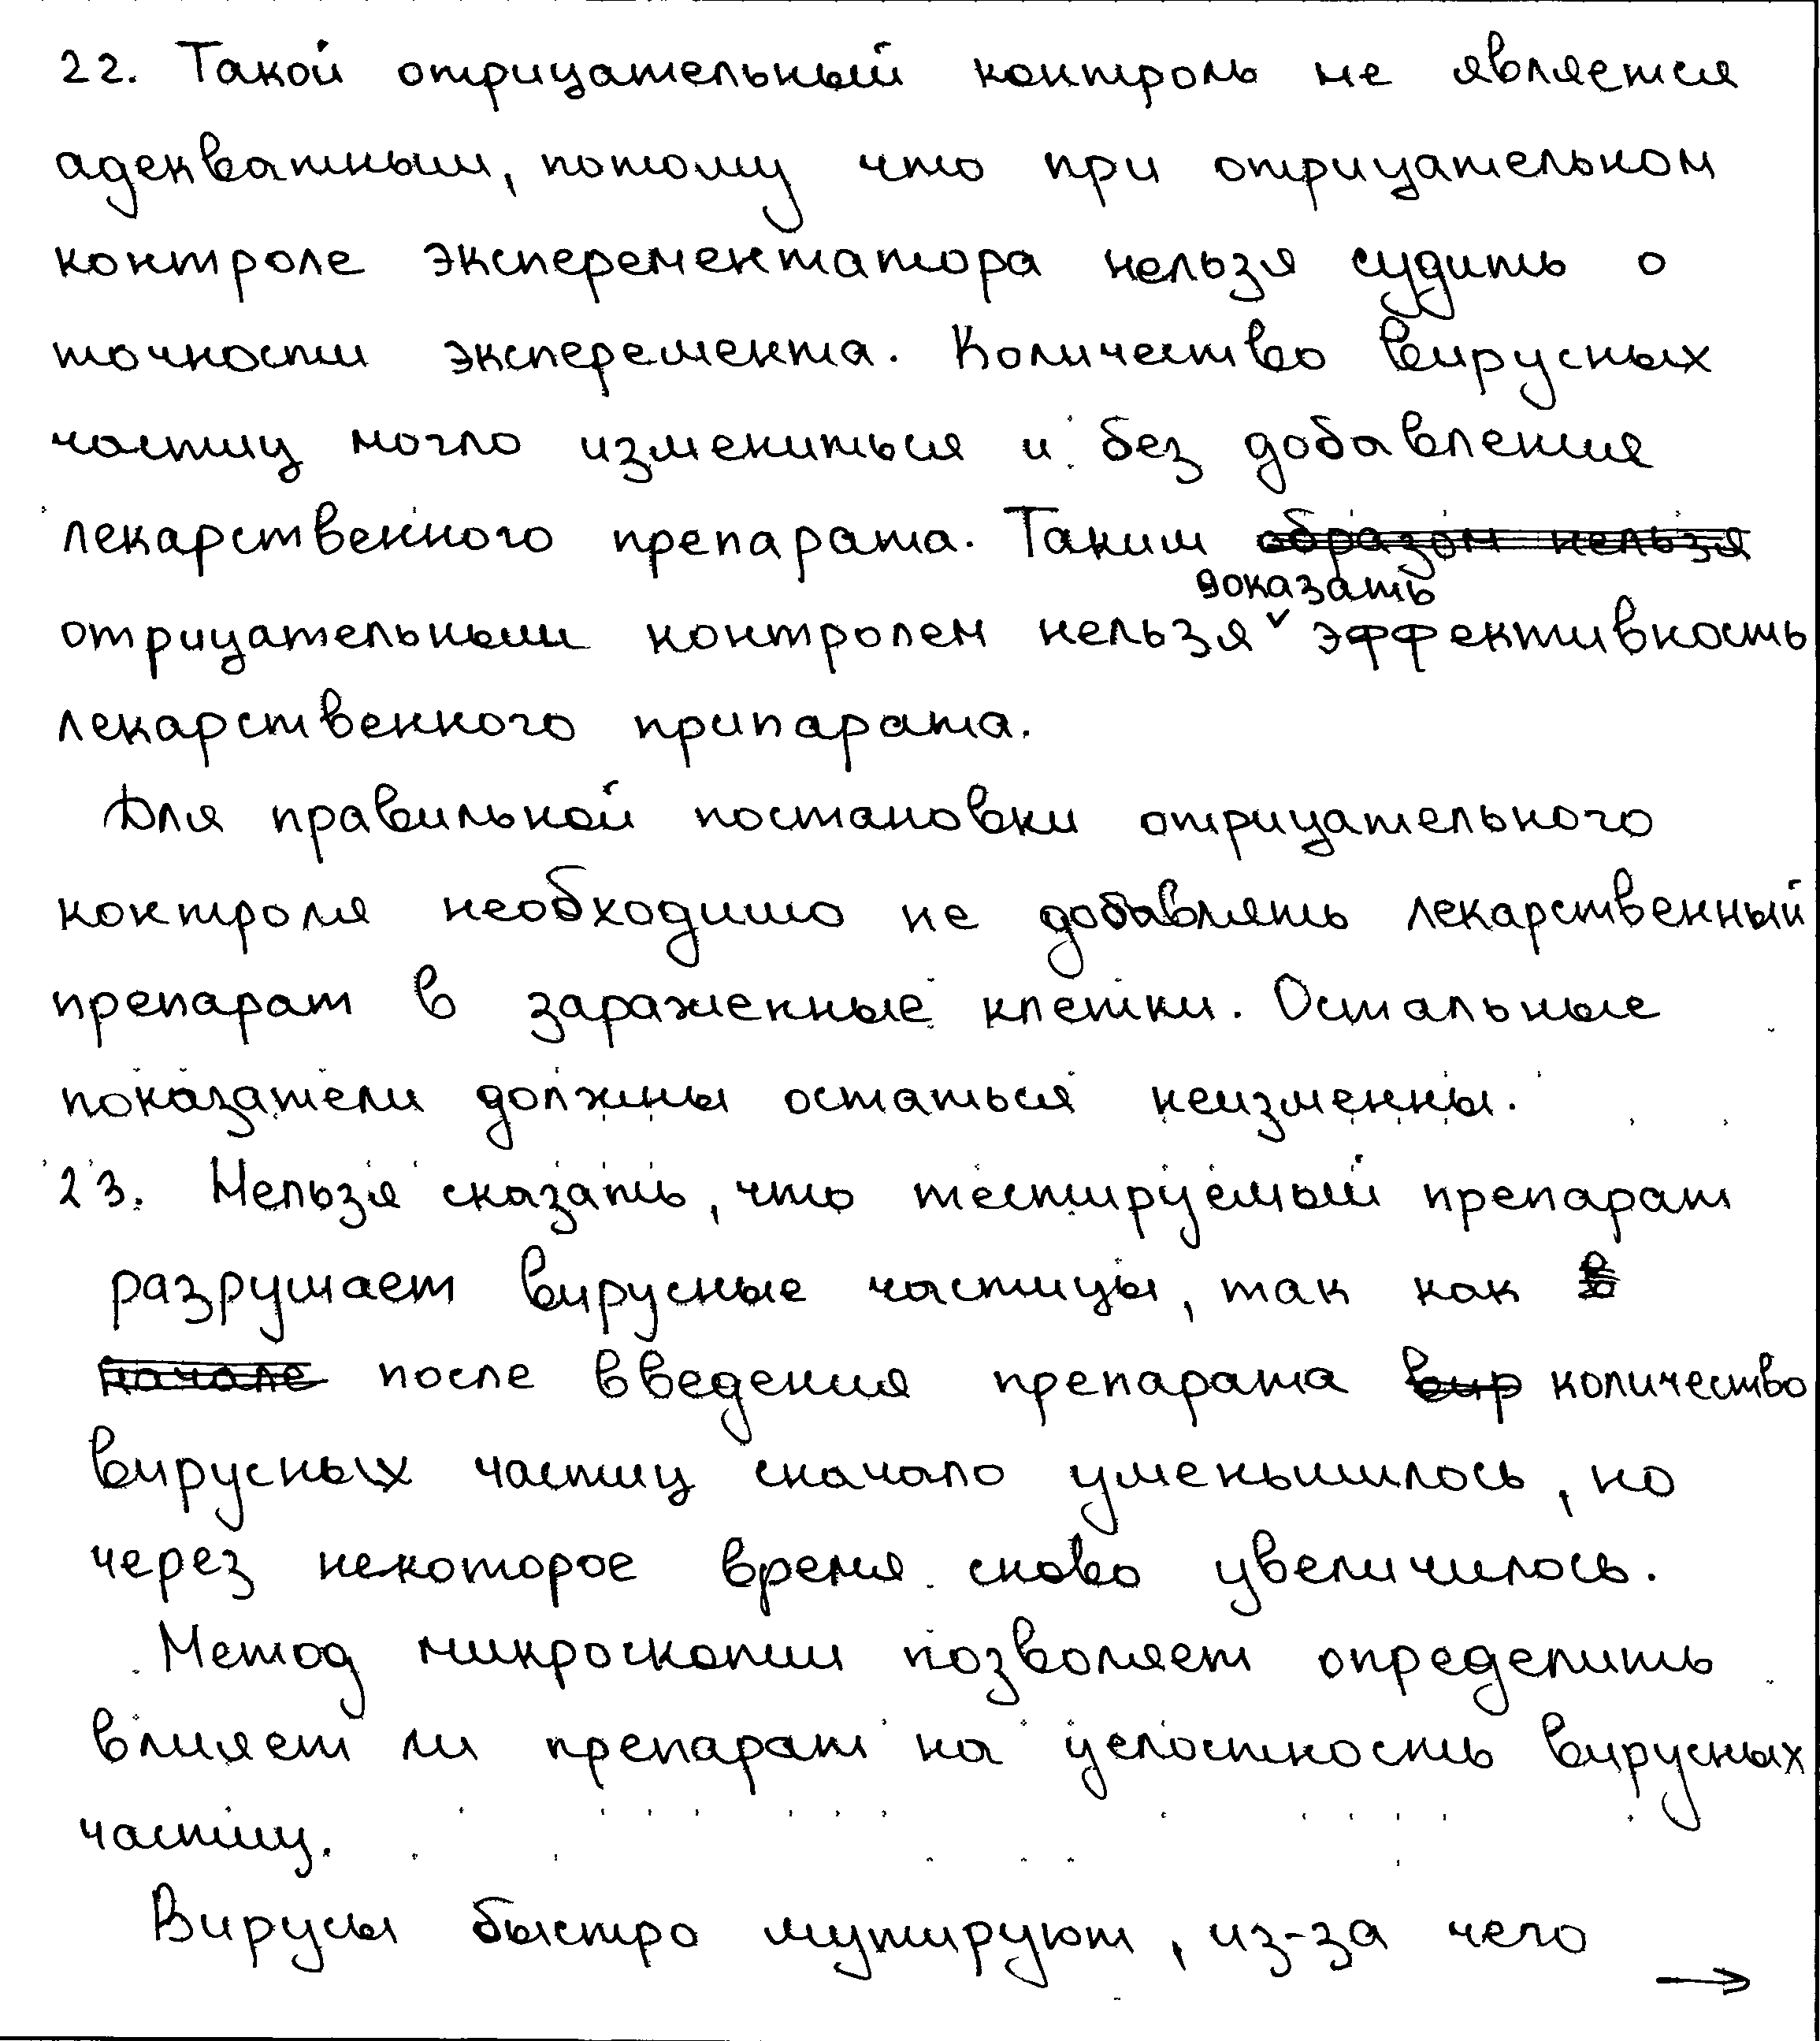 22. Такой отрицательный контроль не является
адекватным, потому что при отрицательном
контроле эксперементатора нельзя судить о
точности эксперемента. Количество вирусных
частиц могло измениться и без добавления
лекарственного препарата. Таким образом нельзя
доказать
отрицательным контролем нельзя ˅ эффективность
лекарственного припарата.
Для правильной постановки отрицательного
контроля необходимо не добавлять лекарственный
препарат в зараженные клетки. Остальные
показатели должны остаться неизменны.
23. Нельзя сказать, что тестируемый препарат
разрушает вирусные частицы, так как в
начале после введения препарата вир количество
вирусных частиц сначало уменьшилось, но
через некоторое время снова увеличилось.
Метод микроскопии позволяет определить
влияет ли препарат на целостность вирусных
частиц.
Вирусы быстро мутируют, из-за чего
→